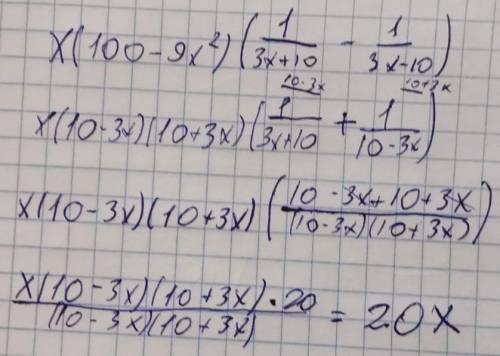 X(100-9x²)(1/(3x+10) - 1/(3x-10))
10-3x 10+3x
x(10-3x)(10+3x)(1/(3x+10) + 1/(10-3x))
x(10-3x)(10+3x)((10-3x+10+3x)/((10-3x)(10+3x)))
(x(10-3x)(10+3x)·20)/((10-3x)(10+3x)) = 20x